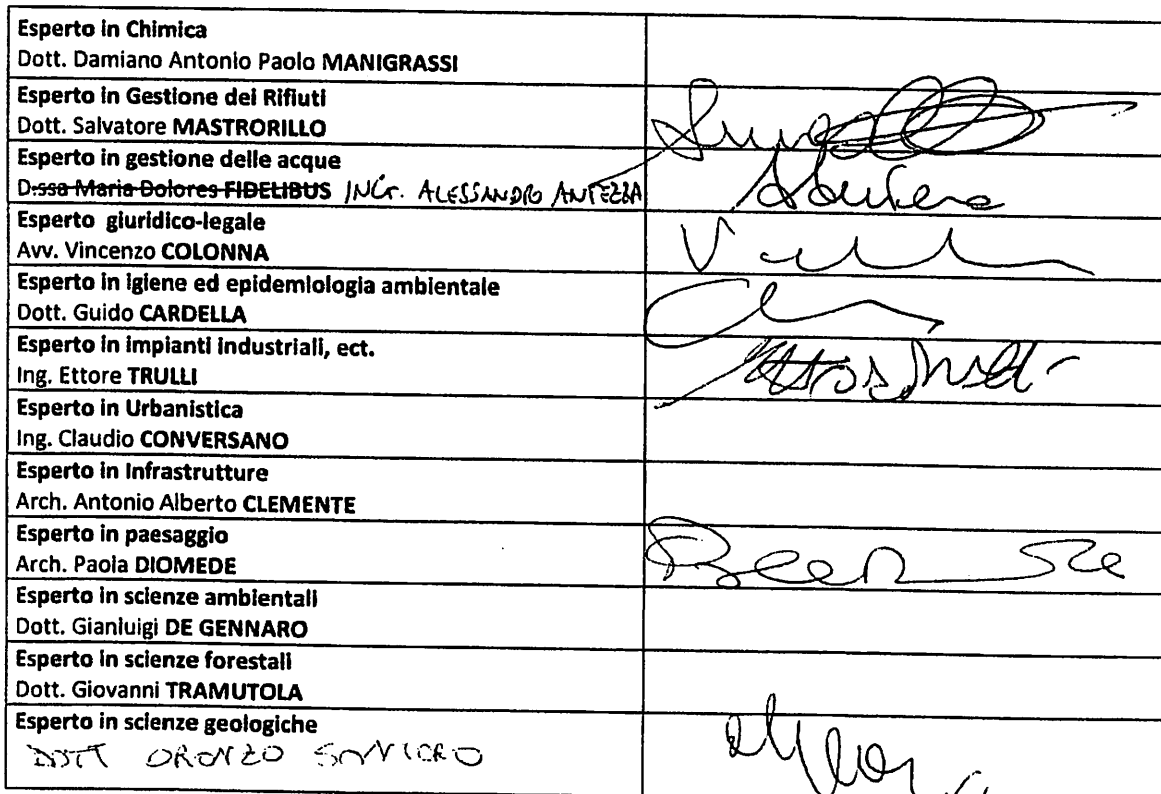 Esperto in Chimica
Dott. Damiano Antonio Paolo MANIGRASSI
Esperto in Gestione dei Rifiuti
Dott. Salvatore MASTRORILLO
Esperto in gestione delle acque
D.ssa Maria Dolores FIDELIBUS ING. ALESSANDRO ANTEZZA
Esperto giuridico-legale
Avv. Vincenzo COLONNA
Esperto in igiene ed epidemiologia ambientale
Dott. Guido CARDELLA
Esperto in impianti industriali, ect.
Ing. Ettore TRULLI
Esperto in Urbanistica
Ing. Claudio CONVERSANO
Esperto in Infrastrutture
Arch. Antonio Alberto CLEMENTE
Esperto in paesaggio
Arch. Paola DIOMEDE
Esperto in scienze ambientali
Dott. Gianluigi DE GENNARO
Esperto in scienze forestali
Dott. Giovanni TRAMUTOLA
Esperto in scienze geologiche
DOTT ORONZO